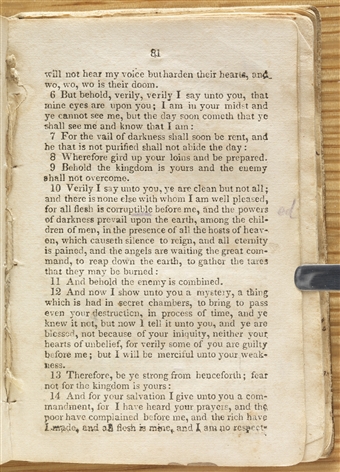 81
will not hear my voice but harden their hearts, and
wo, wo, wo is their doom.
6 But behold, verily, verily I say unto you, that
mine eyes are upon you; I am in your midst and
ye cannot see me, but the day soon cometh that ye
shall see me and know that I am:
7 For the vail of darkness shall soon be rent, and
he that is not purified shall not abide the day:
8 Wherefore gird up your loins and be prepared.
9 Behold the kingdom is yours and the enemy
shall not overcome.
10 Verily I say unto you, ye are clean but not all;
and there is none else with whom I am well pleased,
for all flesh is corruptible before me, and the powers
of darkness prevail upon the earth, among the chil-
dren of men, in the presence of all the hosts of heav-
en, which causeth silence to reign, and all eternity
is pained, and the angels are waiting the great com-
mand, to reap down the earth, to gather the tares
that they may be burned:
11 And behold the enemy is combined.
12 And now I show unto you a mystery, a thing
which is had in secret chambers, to bring to pass
even your destruction, in process of time, and ye
knew it not, but now I tell it unto you, and ye are
blessed, not because of your iniquity, neither your
hearts of unbelief, for verily some of you are guilty
before me; but I will be merciful unto your weak-
ness.
13 Therefore, be ye strong from henceforth; fear
not for the kingdom is yours:
14 And for your salvation I give unto you a com-
mandment, for I have heard your prayers, and the
poor have complained before me, and the rich have
I made, and all flesh is mine, and I am no respect-